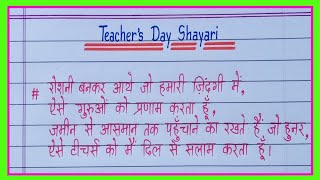 Teacher's Day Shayari
# रोशनी बनकर आये जो हमारी ज़िंदगी में,
ऐसे गुरुओं को प्रणाम करता हूँ,
जमीन से आसमान तक पहुँचाने का रखते हैं जो हुनर,
ऐसे टीचर्स को मैं दिल से सलाम करता हूँ।